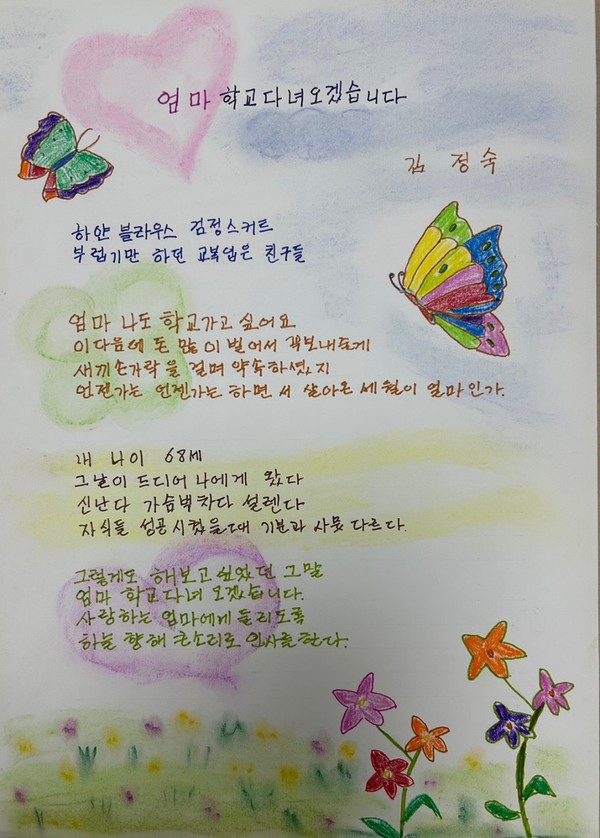 엄마 학교다녀오겠습니다
김 정숙
하얀 블라우스 검정스커트
부럽기만 하던 교복입은 친구들
엄마 나도 학교가고 싶어요
이다음에 돈 많이 벌어서 꼭보내줄게
새끼손가락을 걸며 약속하셨지
언젠가는 언젠가는 하면서 살아온 세월이 얼마인가.
내 나이 68세
그날이 드디어 나에게 왔다
신난다 가슴벅차다 설렌다
자식들 성공시켰을때 기분과 사뭇 다르다.
그렇게도 해보고 싶었던 그말
엄마 학교다녀 오겠습니다.
사랑하는 엄마에게 들리도록
하늘 향해 큰소리로 인사를한다.